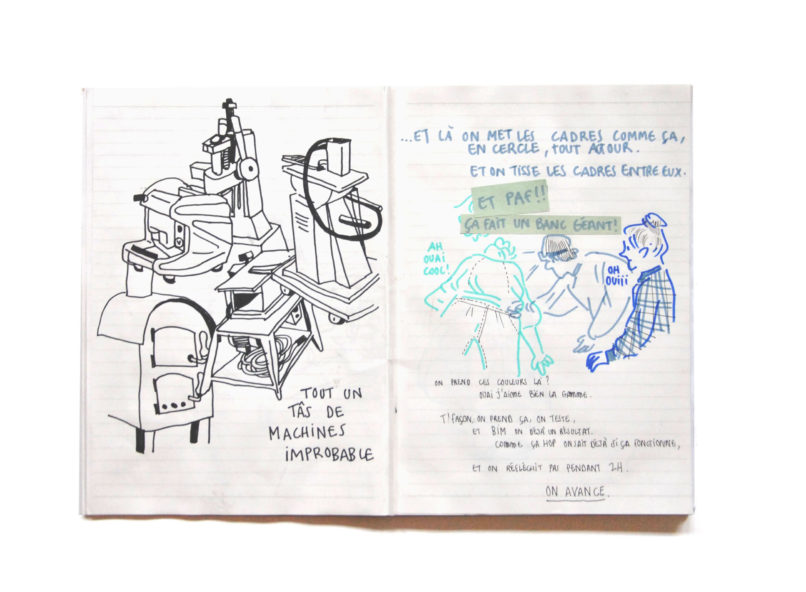 TOUT UN
TÂS DE
MACHINES
iMPROBABLE
...ET LÀ ON MET LES CADRES COMME ÇA,
EN CERCLE, TOUT AUTOUR.
ET ON TISSE LES CADRES ENTRE EUX.
ET PAF!!
ÇA FAIT UN BANC GEANT!
AH
OUAI
COOL!
OH
OUiii
ON PREND CES COULEURS LÀ?
OUAI J'AIME BIEN LA GAMME.
T'FAÇON, ON PREND ÇA, ON TESTE,
ET BIM ON DÉJÀ UN RÉSULTAT.
COMME ÇA HOP ON SAIT DÉJÀ SI ÇA FONCTIONNE,
ET ON RÉFLÉCHIT PAS PENDANT 2H.
ON AVANCE.